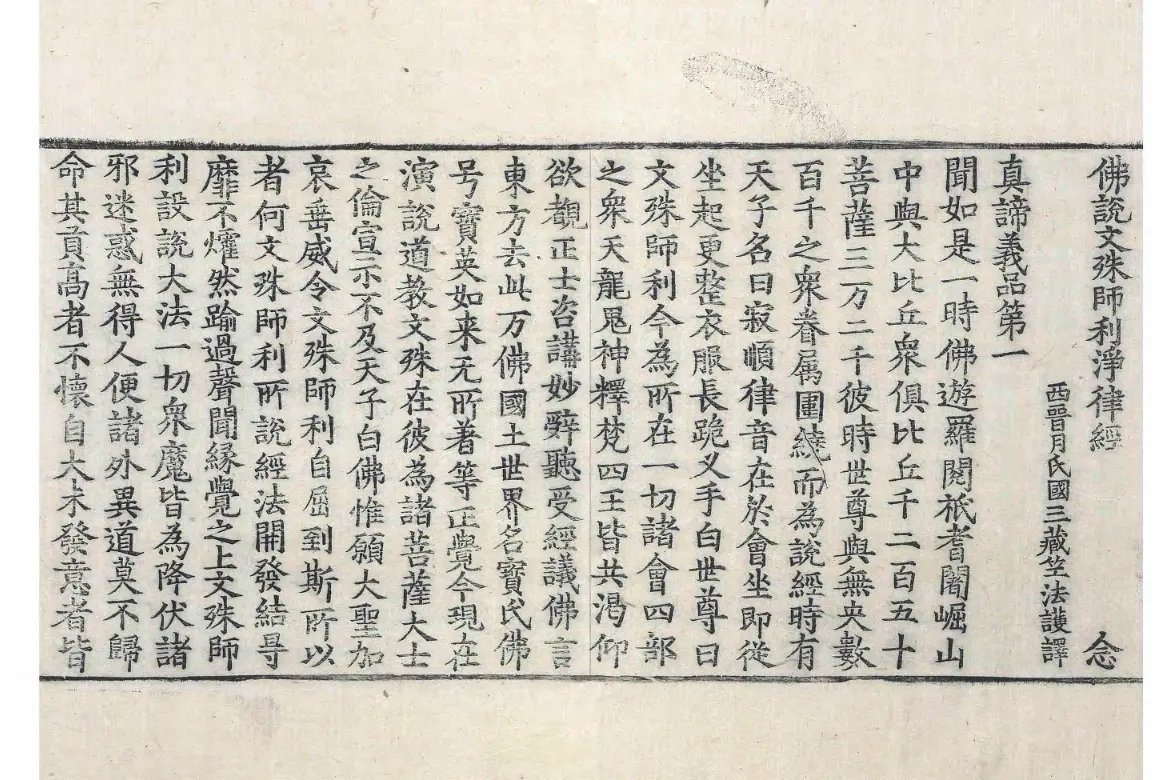 佛說文殊師利淨律經 念
西晉月氏國三藏竺法護譯
真諦義品第一
聞如是一時佛遊羅閱祇耆闍崛山
中與大比丘衆俱比丘千二百五十
菩薩三万二千彼時世尊與無央數
百千之衆眷属圍繞而為說經時有
天子名曰寂順律音在於會坐即從
坐起更整衣服長跪叉手白世尊曰
文殊師利今為所在一切諸會四部
之衆天龍鬼神釋梵四王皆共渴仰
欲覩正士咨講妙辭聽受經議佛言
東方去此万佛國土世界名寶氏佛
号寶英如来无所著等正覺今現在
演說道教文殊在彼為諸菩薩大士
之倫宣示不及天子白佛惟願大聖加
哀垂威令文殊師利自屈到斯所以
者何文殊師利所說經法開發結㝵
靡不燿然踰過聲聞緣覺之上文殊師
利設說大法一切衆魔皆為降伏諸
邪迷惑無得人便諸外異道莫不歸
命其貢高者不懷自大未發意者皆